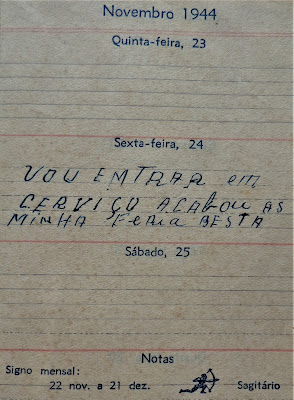 Novembro 1944
Quinta-feira, 23
Sexta-feira, 24
VOU EMTRAR em
CERVIÇO ACABOU AS
MINHA FERIA BESTA
Sábado, 25
Notas
Signo mensal:
22 nov. a 21 dez.
Sagitário